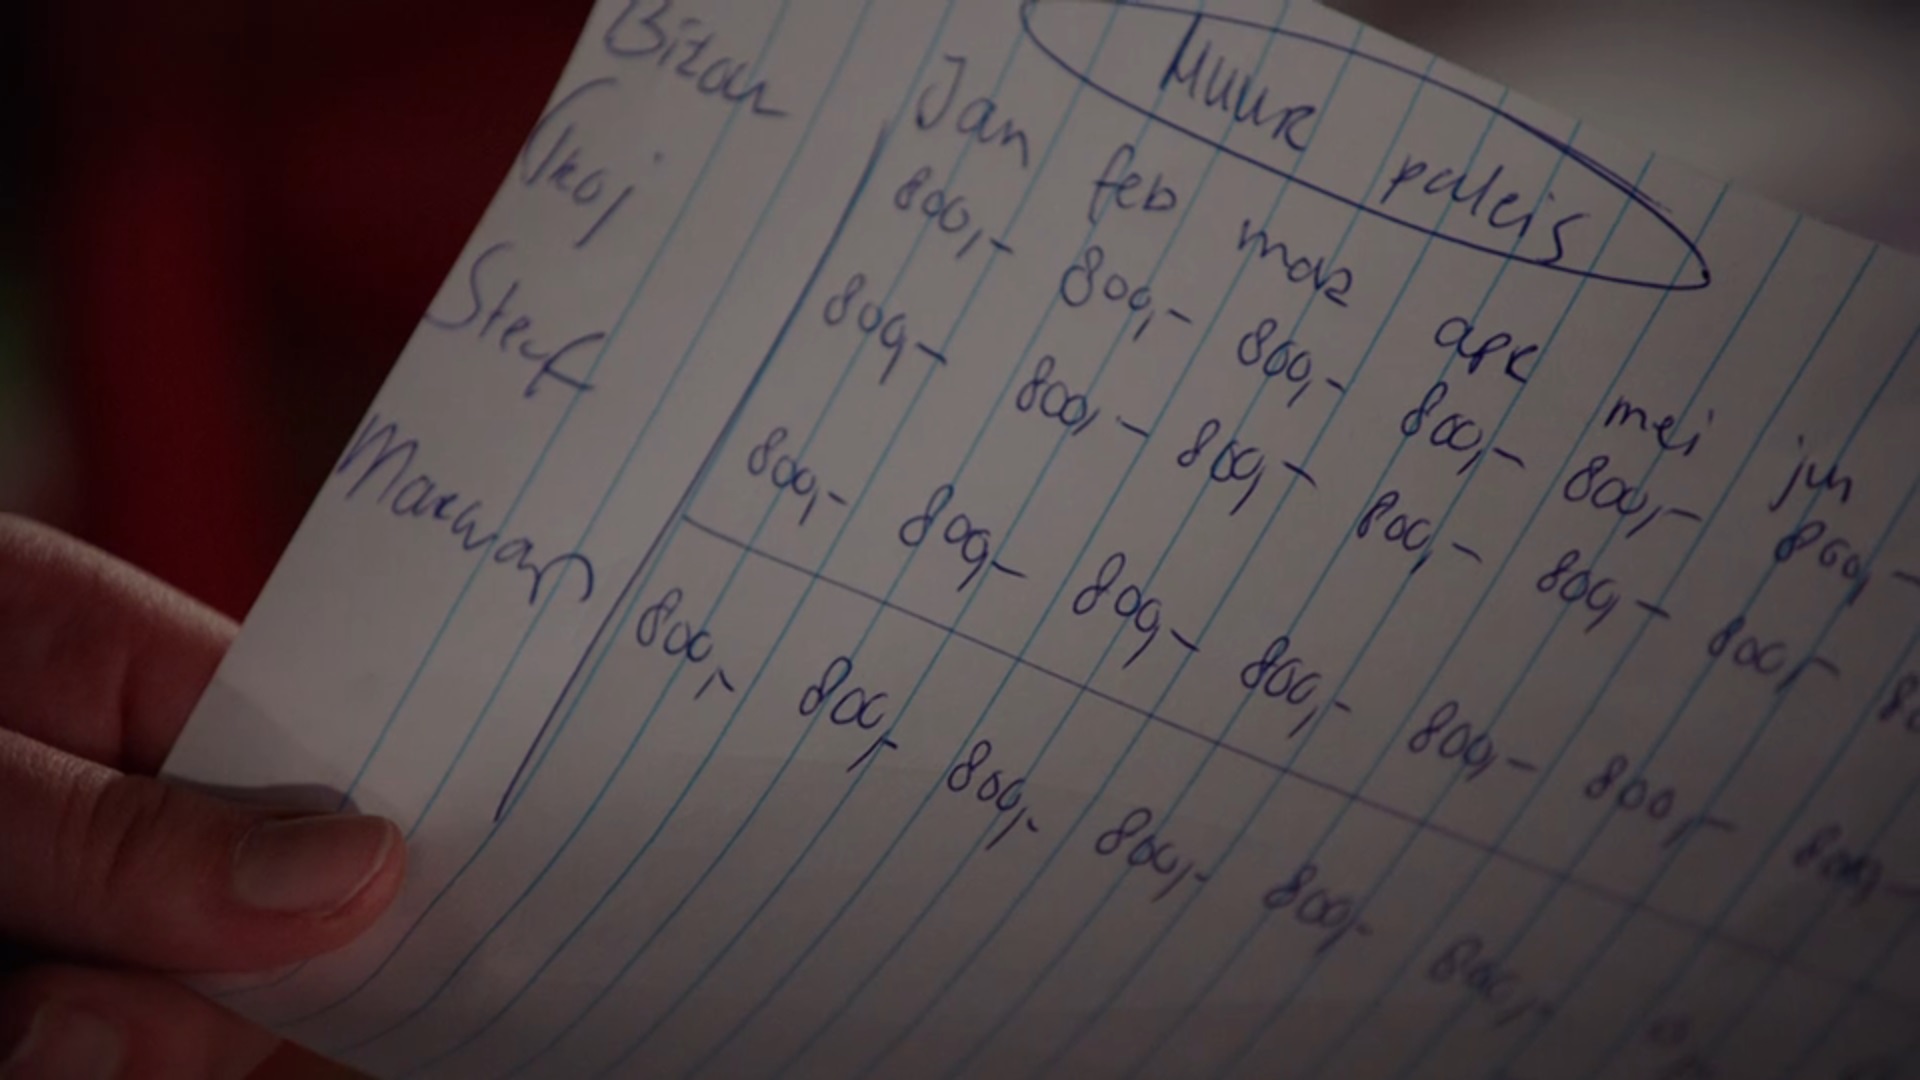 Huur paleis
Jan feb mar apr mei jun
Bizar 800,- 800,- 800,- 800,- 800,- 800,-
Skoj 800,- 800,- 800,- 800,- 800,- 800,-
Stef 800,- 800,- 800,- 800,- 800,- 800,- 800,-
Marwan 800,- 800,- 800,- 800,- 800,- 800,-